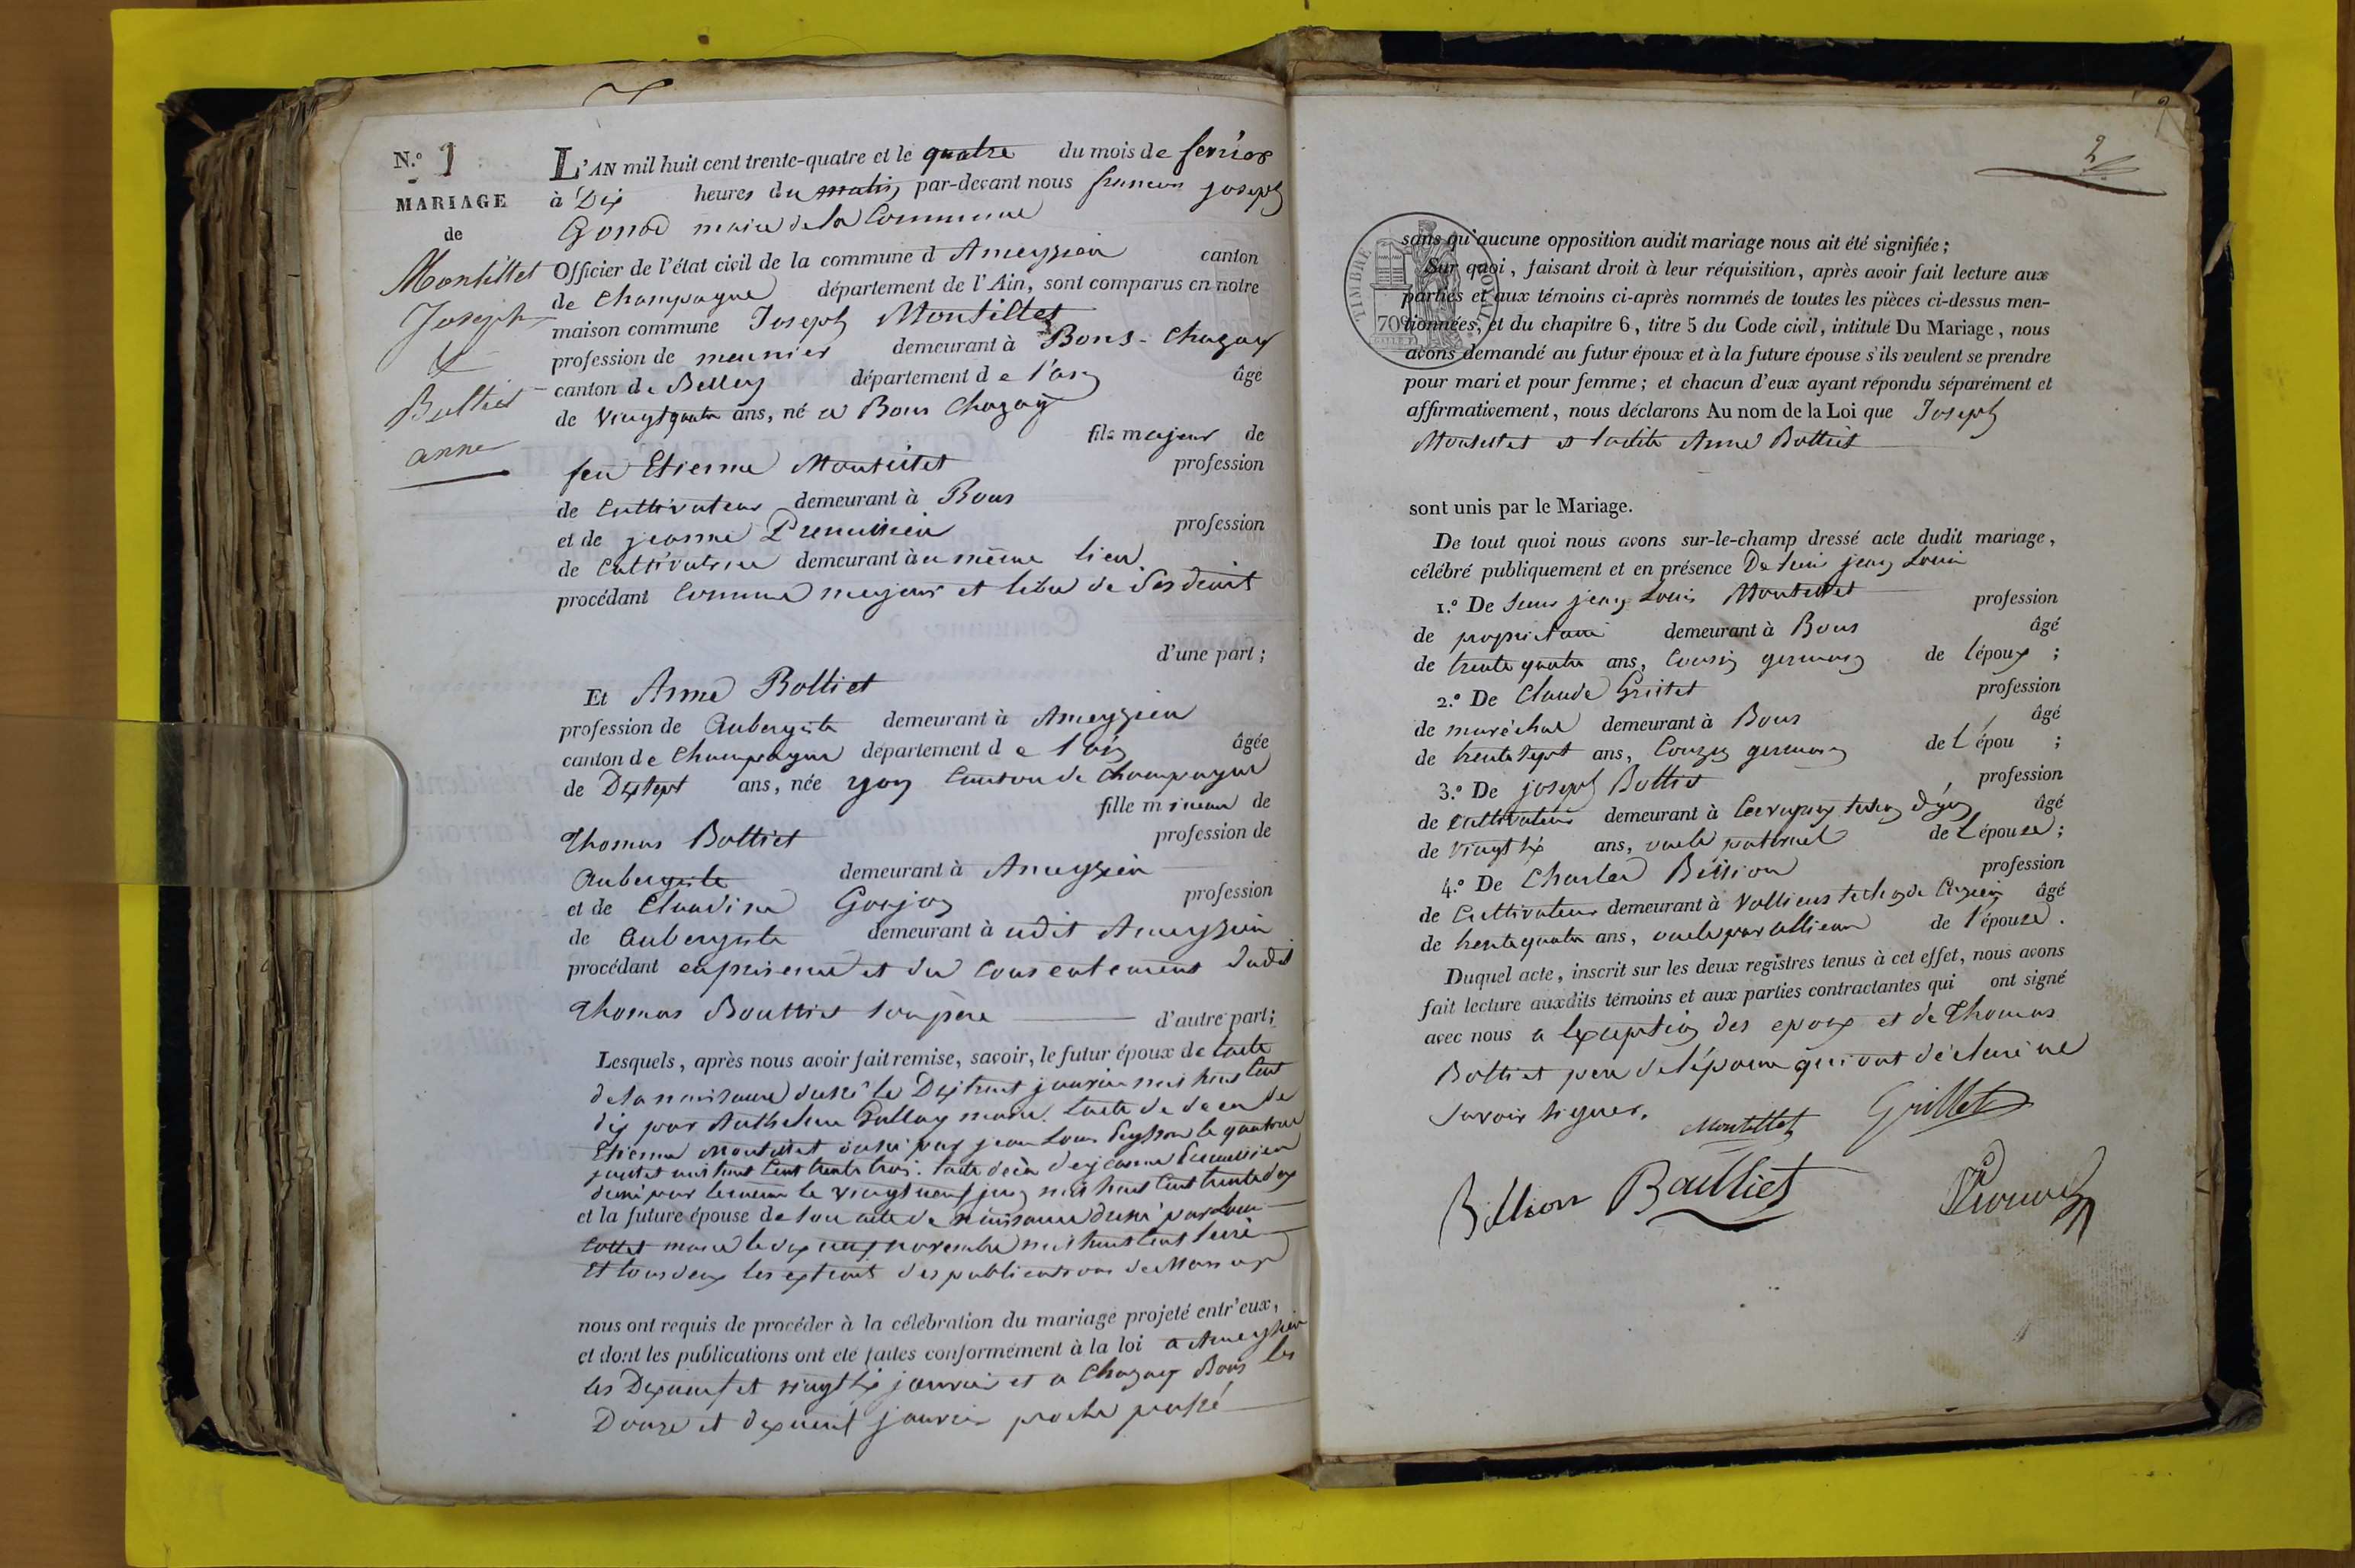 N.º 1
MARIAGE
de
Montillet
Joseph
&
Bolliet
anne
L'AN mil huit cent trente-quatre et le quatre du mois de fevrier
à Dix heures du matin, par-devant nous francois joseph
Gonod maire de la Commune
Officier de l'état civil de la commune d Ameyzieu canton
de Champagne département de l'Ain, sont comparus en notre
maison commune Joseph Montillet
profession de meunier demeurant à Bons-Chazay
canton de Belley département de l'ain âgé
de vingt quatre ans, né a Bons Chazay
fils majeur de
feu Etienne Montillet profession
de Cultivateur demeurant à Bons
et de jeanne profession
de Cultivatrice demeurant à u même lieu
procédant Comme majeur et libre de ses droit
d'une part ;
Et Anne Bolliet
profession de Aubergiste demeurant à Ameyzieu
canton de Champagne département de l'ain âgée
de Dix sept ans, née yon Canton de Champagne
fille mineur de
Thomas Bolliet profession de
Aubergiste demeurant à Ameyzieu
et de Claudine Goujon profession
de Aubergiste demeurant à udit Ameyzieu
procédant en presence et du Consentement dudit
Thomas Bolliet son père d'autre part ;
Lesquels, après nous avoir fait remise, savoir, le futur époux de lacte
de sa naissance dressé le Dix huit janvier mil huit Cent
dix par Anthelme maire. lacte de deces de
Etienne Montillet dressé par jean Louis le quatre
mil huit Cent trente trois. lacte decès de jeanne
dressé par le meme le vingt neuf juin mil huit Cent trente deux
et la future épouse de son acte de naissance dressé par Louis
Collet maire le dix neuf novembre mil huit Cent seize
Et tous deux les extraits des publications de Mariage
nous ont requis de procéder à la célébration du mariage projeté entr'eux,
et dont les publications ont été faites conformément à la loi a Ameyzieu
les Dix neuf et vingt six janvier et a Chazay Bons les
Douze et dix neuf janvier proche passé
2
TIMBRE ROYAL
70
sans qu'aucune opposition audit mariage nous ait été signifiée ;
Sur quoi, faisant droit à leur réquisition, après avoir fait lecture aux
parties et aux témoins ci-après nommés de toutes les pièces ci-dessus men-
tionnées, et du chapitre 6, titre 5 du Code civil, intitulé Du Mariage, nous
avons demandé au futur époux et à la future épouse s'ils veulent se prendre
pour mari et pour femme ; et chacun d'eux ayant répondu séparément et
affirmativement, nous déclarons Au nom de la Loi que Joseph
Montillet et ladite Anne Bolliet
sont unis par le Mariage.
De tout quoi nous avons sur-le-champ dressé acte dudit mariage,
célébré publiquement et en présence De sieur jean Louis
1.º De sieur jean Louis Montillet profession
de propriétaire demeurant à Bons âgé
de trente quatre ans, Cousin germain de lépoux ;
2.º De Claude Grillet profession
de maréchal demeurant à Bons âgé
de trente sept ans, Couzin germain de l épou ;
3.º De joseph Bolliet profession
de Cultivateur demeurant à d'yon âgé
de vingt six ans, oncle paternel de l épouse ;
4.º De Charles Billion profession
de Cultivateur demeurant à Vollieus âgé
de trente quatre ans, oncle par de l'épouse.
Duquel acte, inscrit sur les deux registres tenus à cet effet, nous avons
fait lecture auxdits témoins et aux parties contractantes qui ont signé
avec nous a lexception des epoux et de Thomas
Bolliet pere de l'épouse qui ont déclaré ne
savoir signer.
Montillet Grillet
Billion Baulliet